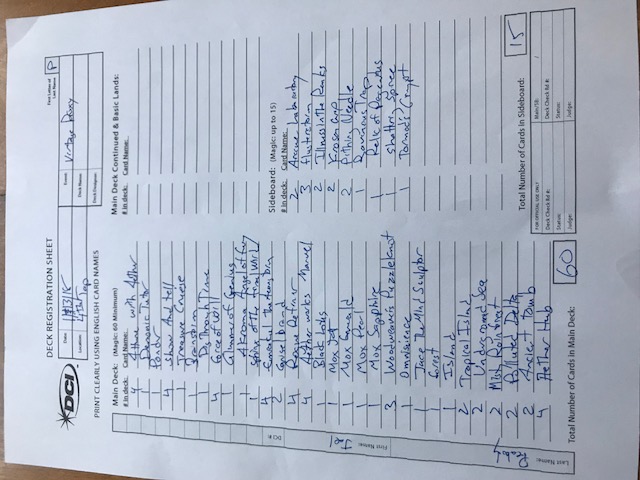 DECK REGISTRATION SHEET
First Letter of Last Name: P
DCI
Date: 1/13/18
Event: Vintage Proxy
Location: 4th Tap
Deck Name:
Deck Designer:
PRINT CLEARLY USING ENGLISH CARD NAMES
Main Deck: (Magic: 60 Minimum)
# in deck: Card Name:
4 Attune with Aether
1 Demonic Tutor
1 Ponder
4 Show And tell
1 Treasure Cruise
1 Brainstorm
1 Dig Through Time
4 Force of Will
1 Glimmer of Genius
1 Akroma Angel of Fury
1 Sphinx of the Final Word
4 Emrakul the Aeons torn
2 Griselbrand
4 Rogue Refiner
4 Aether works Marvel
1 Black Lotus
1 Mox Jet
1 Mox Emerald
1 Mox Pearl
1 Mox Sapphire
3 Woodweaver's Puzzleknot
1 Omniscience
1 Jace The Mind Sculptor
1 Forest
1 Island
2 Tropical Island
2 Underground Sea
2 Misty Rainforest
2 Polluted Delta
2 Ancient Tomb
4 Aether Hub
Total Number of Cards in Main Deck: 60
Main Deck Continued & Basic Lands:
# in deck: Card Name:
Sideboard: (Magic: up to 15)
# in deck: Card Name:
2 Arcane Laboratory
3 Flusterstorm
2 Illness in the Ranks
2 Krosan Grip
2 Pithing Needle
1 Ravenous Trap
1 Relic of Progenitus
1 Shattering Spree
1 Tormod's Crypt
Total Number of Cards in Sideboard: 15
FOR OFFICIAL USE ONLY
Main/SB: /
Deck Check Rd #:
Deck Check Rd #:
Status:
Status:
Judge:
Judge:
DCI #:
First Name: Joel
Last Name: Peabody